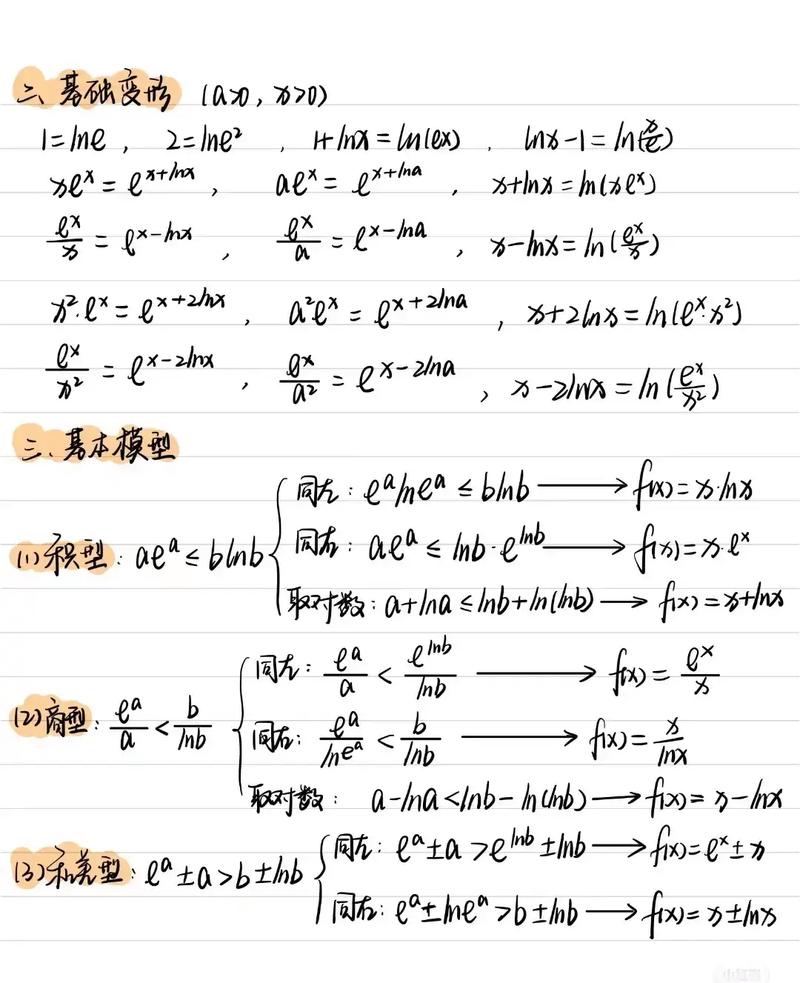 二、基础变形 (a>0, x>0)
1=lne, 2=lne², 1+lnx=ln(ex), lnx-1=ln(x/e)
xeˣ=e^(x+lnx), aeˣ=e^(x+lna), x+lnx=ln(xeˣ)
eˣ/x=e^(x-lnx), eˣ/a=e^(x-lna), x-lnx=ln(eˣ/x)
x²·eˣ=e^(x+2lnx), a²eˣ=e^(x+2lna), x+2lnx=ln(eˣ·x²)
eˣ/x²=e^(x-2lnx), eˣ/a²=e^(x-2lna), x-2lnx=ln(eˣ/x²)
三、基本模型
同左: eᵃlneᵃ≤blnb → f(x)=x·lnx
(1)积型: aeᵃ≤blnb 同右: aeᵃ≤lnb·e^(lnb) → f(x)=x·eˣ
取对数: a+lna≤lnb+ln(lnb) → f(x)=x+lnx
同左: eᵃ/a<e^(lnb)/lnb → f(x)=eˣ/x
(2)商型: eᵃ/a<b/lnb 同右: eᵃ/lneᵃ<b/lnb → f(x)=x/lnx
取对数: a-lna<lnb-ln(lnb) → f(x)=x-lnx
同左: eᵃ±a>e^(lnb)±lnb → f(x)=eˣ±x
(3)和差型: eᵃ±a>b±lnb
同右: eᵃ±lneᵃ>b±lnb → f(x)=x±lnx
小红书